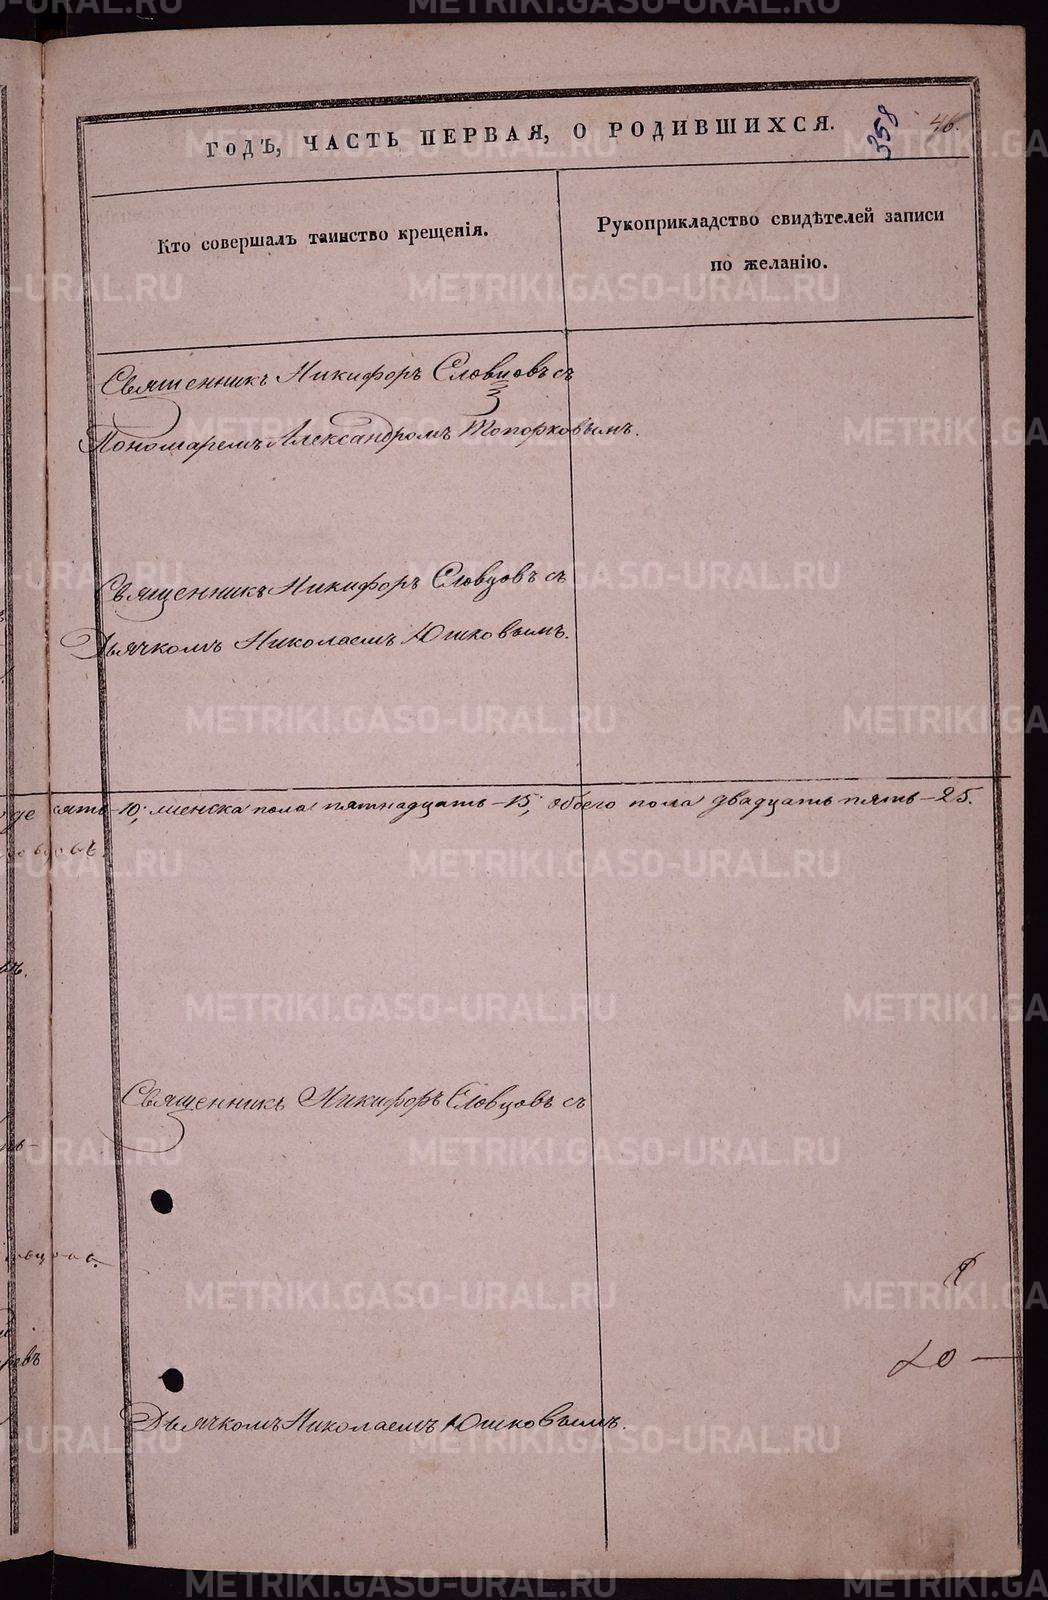 ГОДЪ, ЧАСТЬ ПЕРВАЯ, О РОДИВШИХСЯ.
358
46.
Кто совершалъ таинство крещенія.
Рукоприкладство свидѣтелей записи
по желанію.
Священникъ Никифоръ Словцовъ съ
Пономаремъ Александромъ Топорковымъ.
Священникъ Никифоръ Словцовъ съ
Дьячкомъ Николаемъ Юшковымъ.
десять - 10; женска пола пятнадцать - 15; обоего пола двадцать пять - 25.
Священникъ Никифоръ Словцовъ съ
Дьячкомъ Николаемъ Юшковымъ.
METRIKI.GASO-URAL.RU